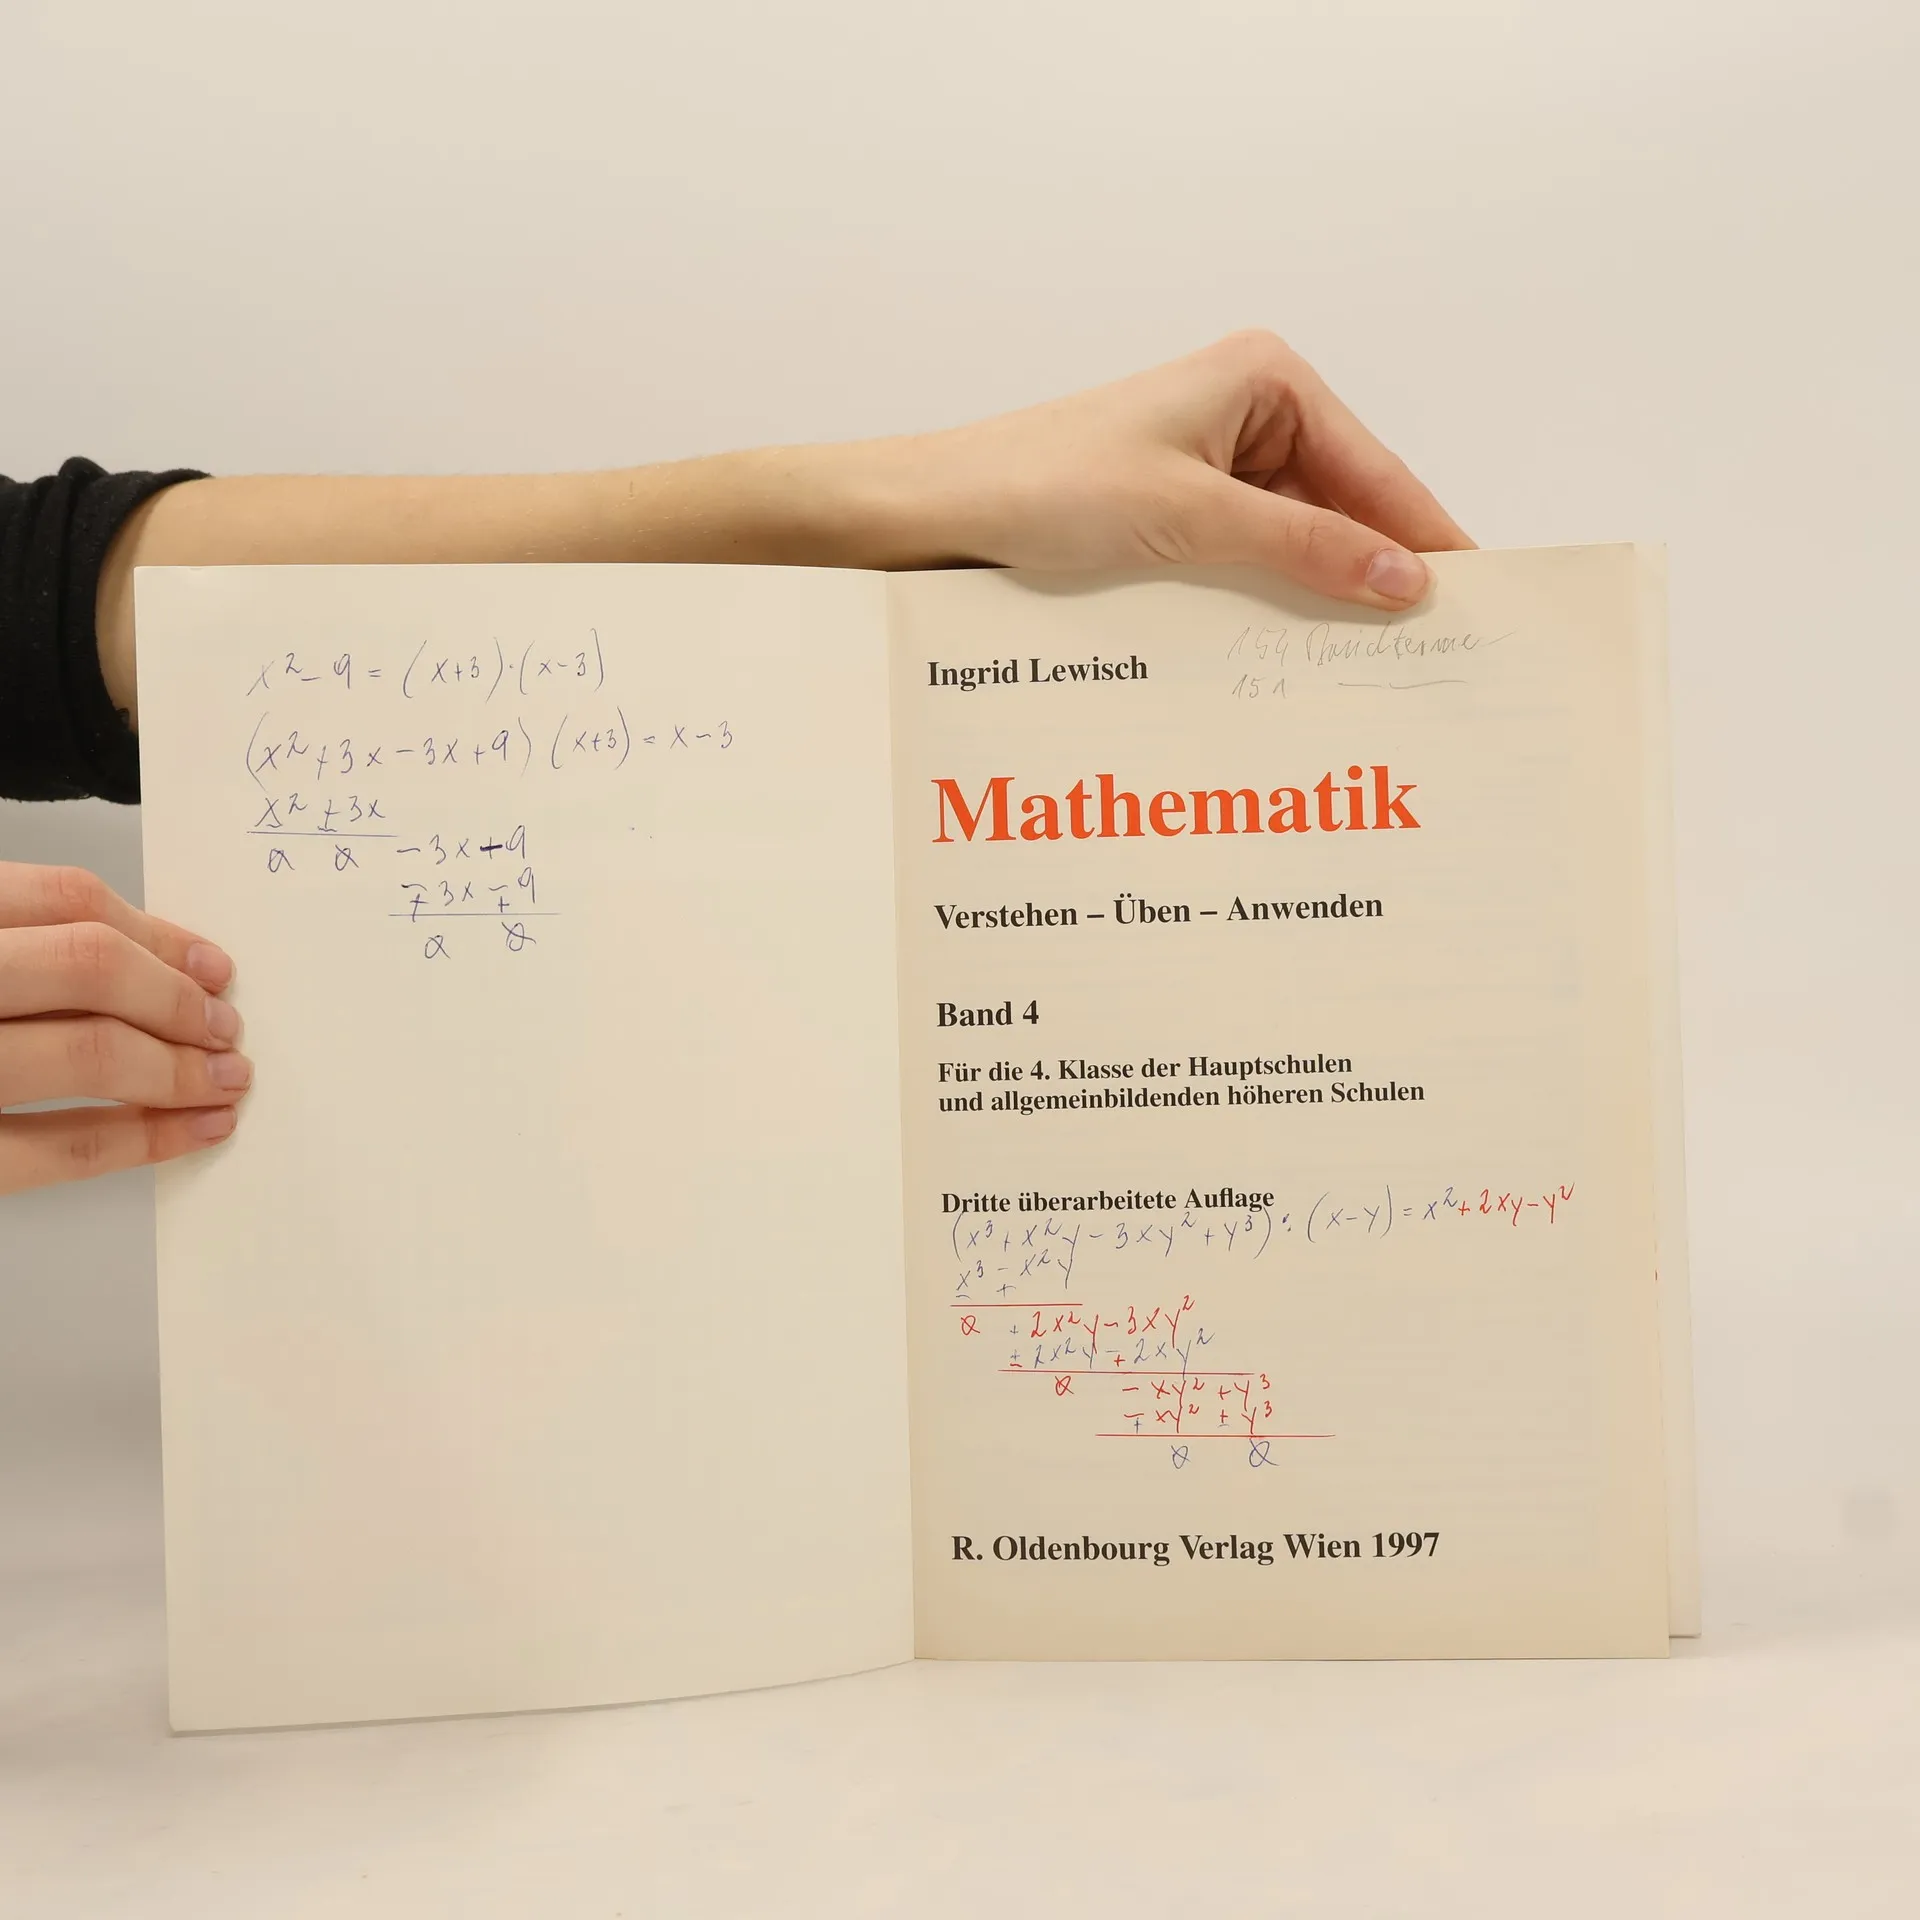 x² - 9 = (x+3)·(x-3)
(x² + 3x - 3x + 9) (x+3) = x - 3
x² ± 3x
0 0 - 3x + 9
∓ 3x ∓ 9
0 0
154 Bruchterme
151
Ingrid Lewisch
Mathematik
Verstehen – Üben – Anwenden
Band 4
Für die 4. Klasse der Hauptschulen
und allgemeinbildenden höheren Schulen
Dritte überarbeitete Auflage
(x³ + x²y - 3xy² + y³) : (x-y) = x² + 2xy - y²
x³ - x²y
- +
0 + 2x²y - 3xy²
± 2x²y ∓ 2xy²
0 - xy² + y³
∓ xy² ± y³
0 0
R. Oldenbourg Verlag Wien 1997